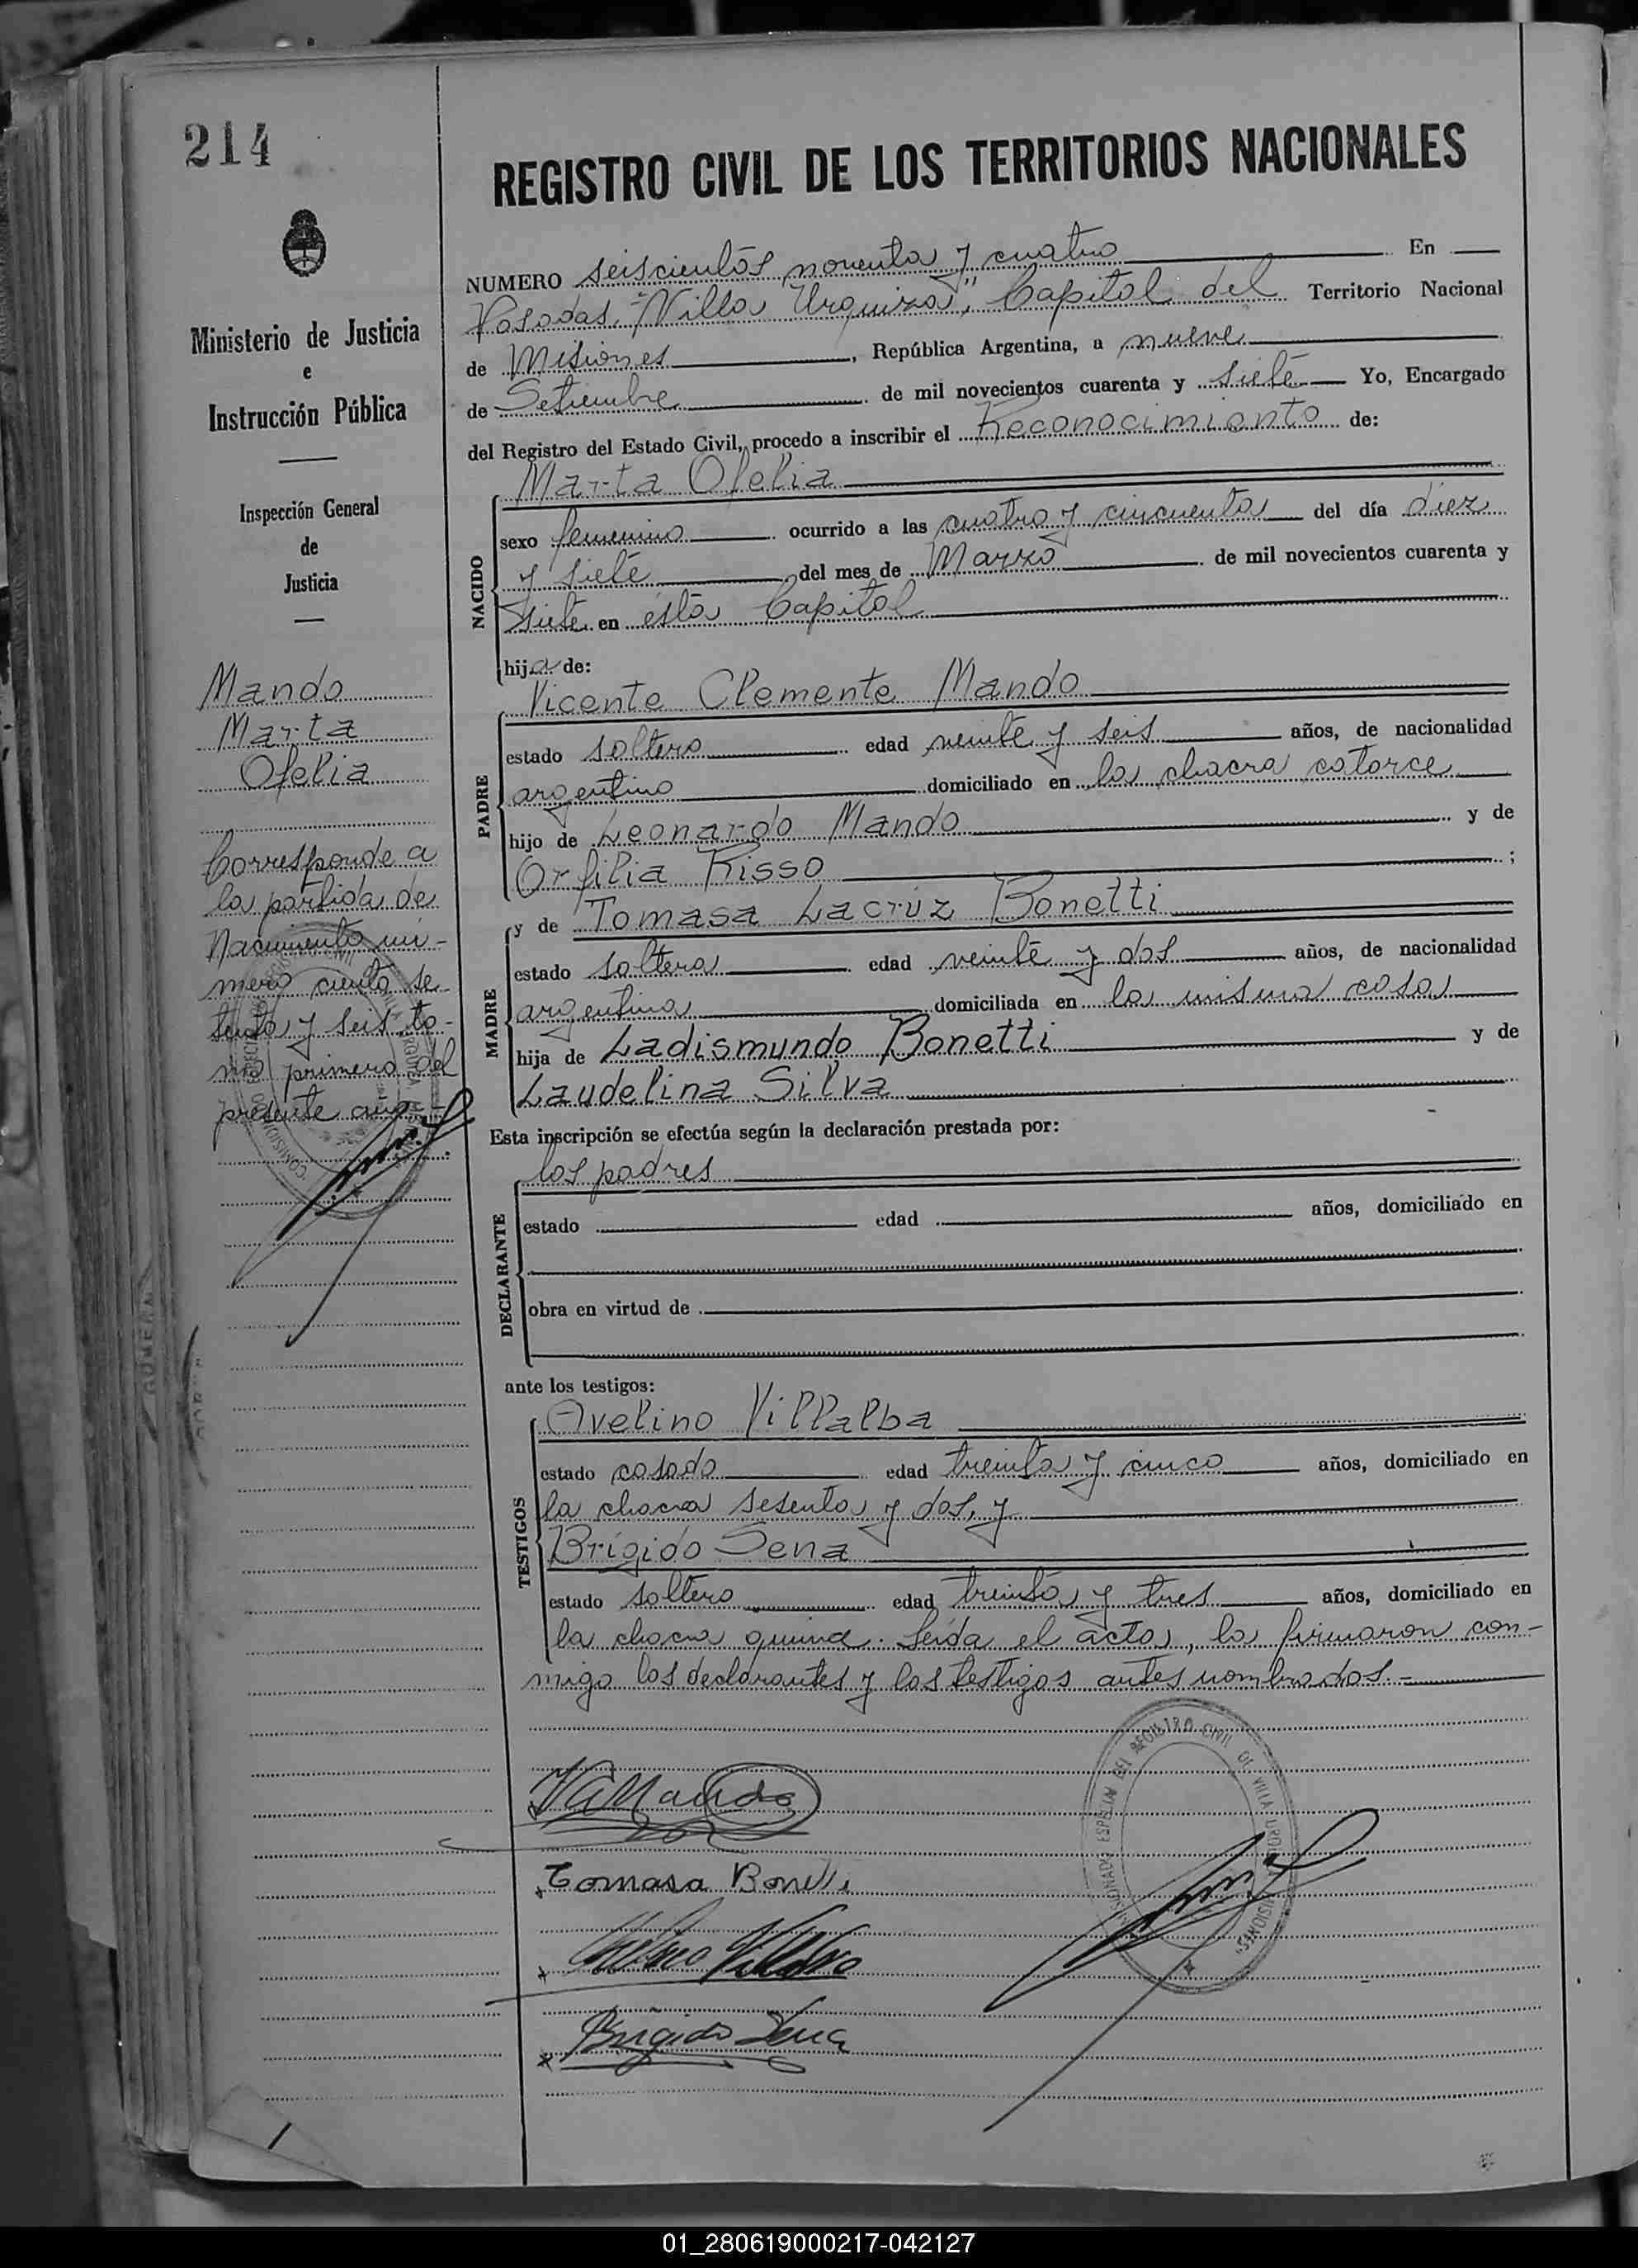 214
Ministerio de Justicia
e
Instrucción Pública
Inspección General
de
Justicia
Mando
Marta
Ofelia
Corresponde a
la partida de
Nacimiento nú-
mero ciento se-
tenta y seis to-
mo primero del
presente año.-
REGISTRO CIVIL DE LOS TERRITORIOS NACIONALES
NUMERO seiscientos noventa y cuatro En
Posadas, "Villa Urquiza", Capital del Territorio Nacional
de Misiones, República Argentina, a nueve
de Setiembre de mil novecientos cuarenta y siete Yo, Encargado
del Registro del Estado Civil, procedo a inscribir el Reconocimiento de:
NACIDO
Marta Ofelia
sexo femenino ocurrido a las cuatro y cincuenta del día diez
y siete del mes de Marzo de mil novecientos cuarenta y
siete en ésta Capital
hija de:
PADRE
Vicente Clemente Mando
estado soltero edad veinte y seis años, de nacionalidad
argentino domiciliado en la chacra catorce
hijo de Leonardo Mando y de
Orfilia Risso ;
MADRE
y de Tomasa Lacrúz Bonetti
estado soltera edad veinte y dos años, de nacionalidad
argentina domiciliada en la misma casa
hija de Ladismundo Bonetti y de
Laudelina Silva
Esta inscripción se efectúa según la declaración prestada por:
DECLARANTE
los padres
estado edad años, domiciliado en
obra en virtud de
ante los testigos:
TESTIGOS
Avelino Villalba
estado casado edad treinta y cinco años, domiciliado en
la chacra sesenta y dos, y
Brígido Sena
estado soltero edad treinta y tres años, domiciliado en
la chacra quince. Leída el acta, la firmaron con-
migo los declarantes y los testigos antes nombrados.-
Tomasa Bonetti
Avelino Villalba
Brigido Sena
REGISTRO CIVIL DE VILLA URQUIZA MISIONES
01_280619000217-042127